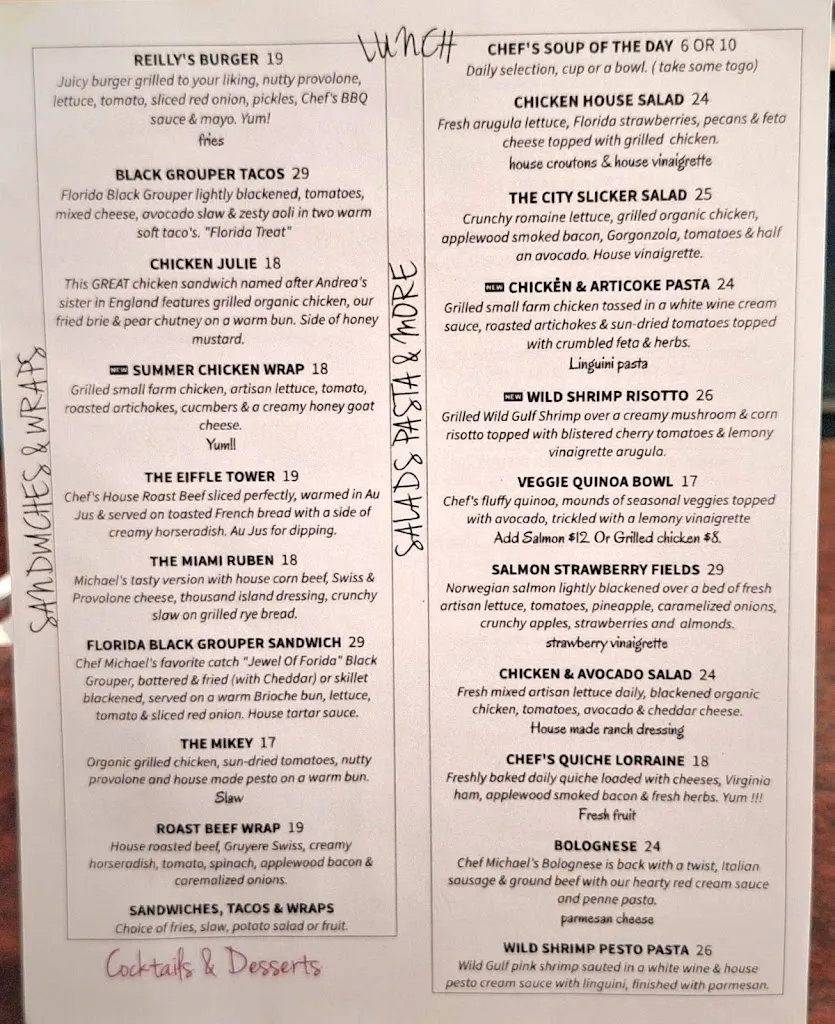 LUNCH
SANDWICHES & WRAPS
REILLY'S BURGER 19
Juicy burger grilled to your liking, nutty provolone,
lettuce, tomato, sliced red onion, pickles, Chef's BBQ
sauce & mayo. Yum!
fries
BLACK GROUPER TACOS 29
Florida Black Grouper lightly blackened, tomatoes,
mixed cheese, avocado slaw & zesty aoli in two warm
soft taco's. "Florida Treat"
CHICKEN JULIE 18
This GREAT chicken sandwich named after Andrea's
sister in England features grilled organic chicken, our
fried brie & pear chutney on a warm bun. Side of honey
mustard.
NEW SUMMER CHICKEN WRAP 18
Grilled small farm chicken, artisan lettuce, tomato,
roasted artichokes, cucmbers & a creamy honey goat
cheese.
Yum!!
THE EIFFLE TOWER 19
Chef's House Roast Beef sliced perfectly, warmed in Au
Jus & served on toasted French bread with a side of
creamy horseradish. Au Jus for dipping.
THE MIAMI RUBEN 18
Michael's tasty version with house corn beef, Swiss &
Provolone cheese, thousand island dressing, crunchy
slaw on grilled rye bread.
FLORIDA BLACK GROUPER SANDWICH 29
Chef Michael's favorite catch "Jewel Of Forida" Black
Grouper, battered & fried (with Cheddar) or skillet
blackened, served on a warm Brioche bun, lettuce,
tomato & sliced red onion. House tartar sauce.
THE MIKEY 17
Organic grilled chicken, sun-dried tomatoes, nutty
provolone and house made pesto on a warm bun.
Slaw
ROAST BEEF WRAP 19
House roasted beef, Gruyere Swiss, creamy
horseradish, tomato, spinach, applewood bacon &
caremalized onions.
SANDWICHES, TACOS & WRAPS
Choice of fries, slaw, potato salad or fruit.
Cocktails & Desserts
SALADS PASTA & MORE
CHEF'S SOUP OF THE DAY 6 OR 10
Daily selection, cup or a bowl. ( take some togo)
CHICKEN HOUSE SALAD 24
Fresh arugula lettuce, Florida strawberries, pecans & feta
cheese topped with grilled chicken.
house croutons & house vinaigrette
THE CITY SLICKER SALAD 25
Crunchy romaine lettuce, grilled organic chicken,
applewood smoked bacon, Gorgonzola, tomatoes & half
an avocado. House vinaigrette.
NEW CHICKEN & ARTICOKE PASTA 24
Grilled small farm chicken tossed in a white wine cream
sauce, roasted artichokes & sun-dried tomatoes topped
with crumbled feta & herbs.
Linguini pasta
NEW WILD SHRIMP RISOTTO 26
Grilled Wild Gulf Shrimp over a creamy mushroom & corn
risotto topped with blistered cherry tomatoes & lemony
vinaigrette arugula.
VEGGIE QUINOA BOWL 17
Chef's fluffy quinoa, mounds of seasonal veggies topped
with avocado, trickled with a lemony vinaigrette
Add Salmon $12 Or Grilled chicken $8.
SALMON STRAWBERRY FIELDS 29
Norwegian salmon lightly blackened over a bed of fresh
artisan lettuce, tomatoes, pineapple, caramelized onions,
crunchy apples, strawberries and almonds.
strawberry vinaigrette
CHICKEN & AVOCADO SALAD 24
Fresh mixed artisan lettuce daily, blackened organic
chicken, tomatoes, avocado & cheddar cheese.
House made ranch dressing
CHEF'S QUICHE LORRAINE 18
Freshly baked daily quiche loaded with cheeses, Virginia
ham, applewood smoked bacon & fresh herbs. Yum !!!
Fresh fruit
BOLOGNESE 24
Chef Michael's Bolognese is back with a twist, Italian
sausage & ground beef with our hearty red cream sauce
and penne pasta.
parmesan cheese
WILD SHRIMP PESTO PASTA 26
Wild Gulf pink shrimp sauted in a white wine & house
pesto cream sauce with linguini, finished with parmesan.